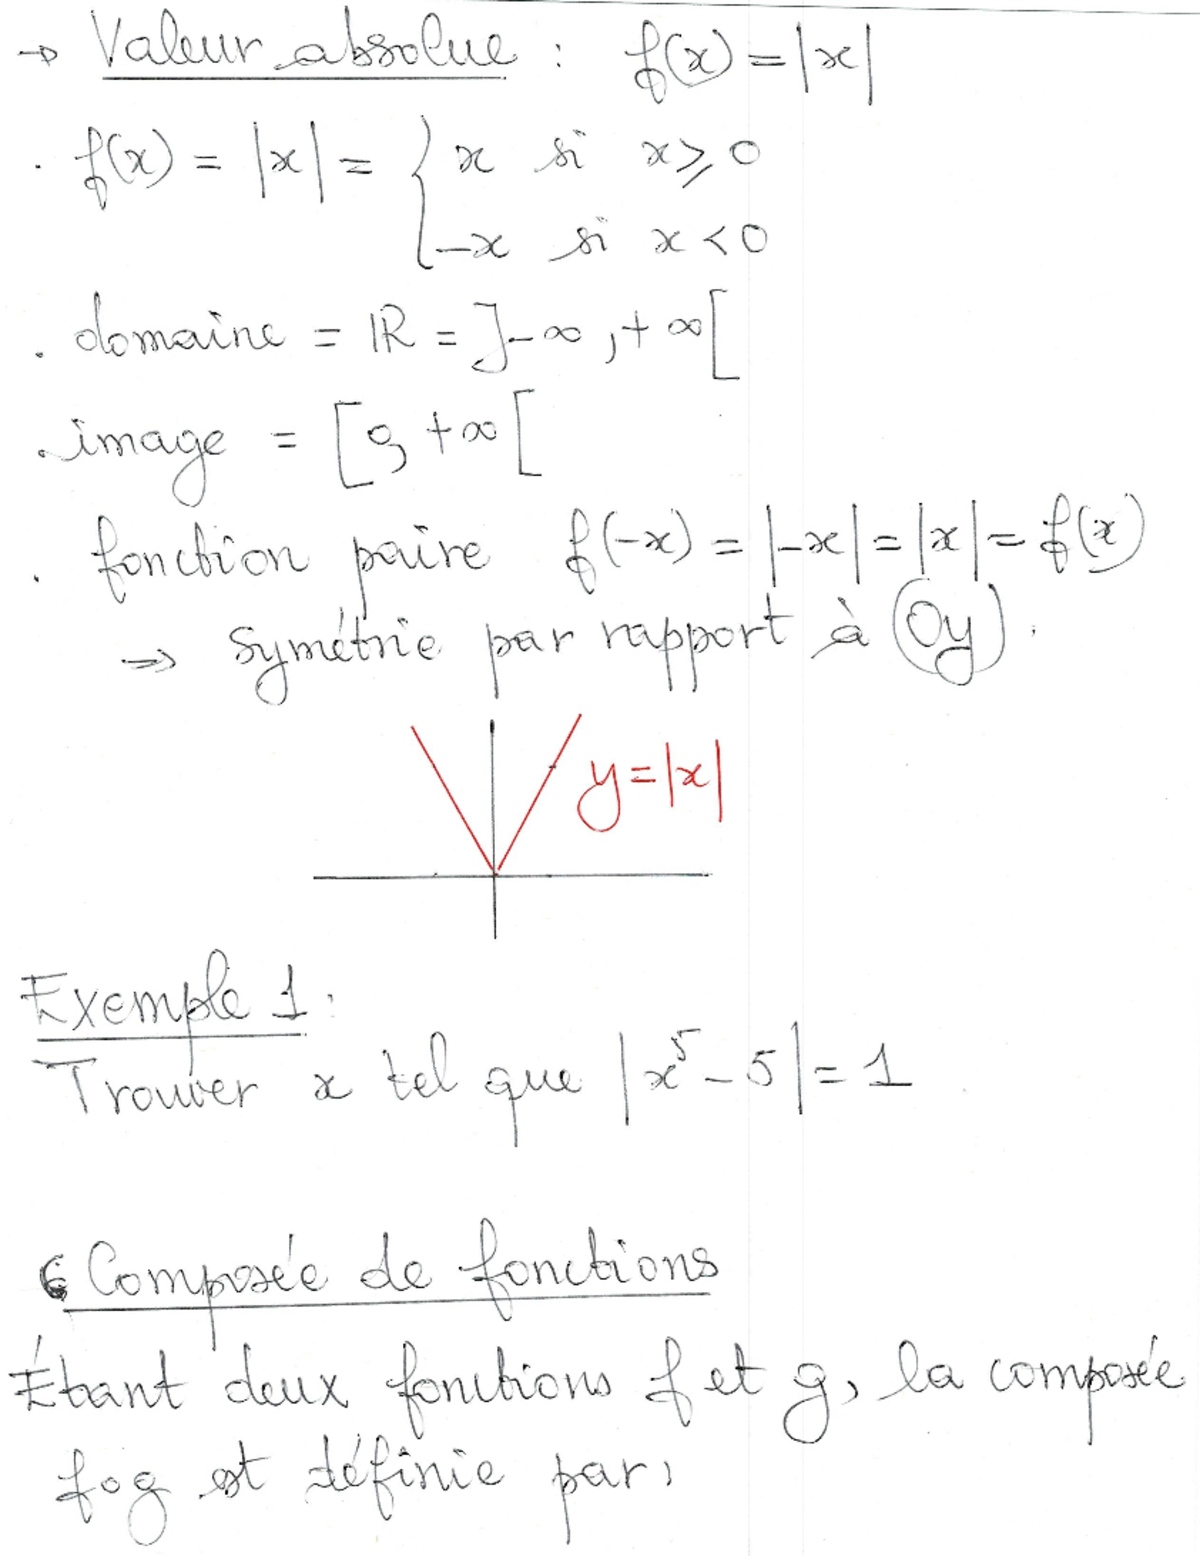 → Valeur absolue : f(x) = |x|
. f(x) = |x| = { x si x ⩾ 0
-x si x < 0
. domaine = ℝ = ]-∞, +∞[
. image = [0, +∞[
. fonction paire f(-x) = |-x| = |x| = f(x)
⇒ Symétrie par rapport à (Oy).
y = |x|
Exemple 1 :
Trouver x tel que |x⁵ - 5| = 1
Composée de fonctions
Étant deux fonctions f et g, la composée
fog est définie par,